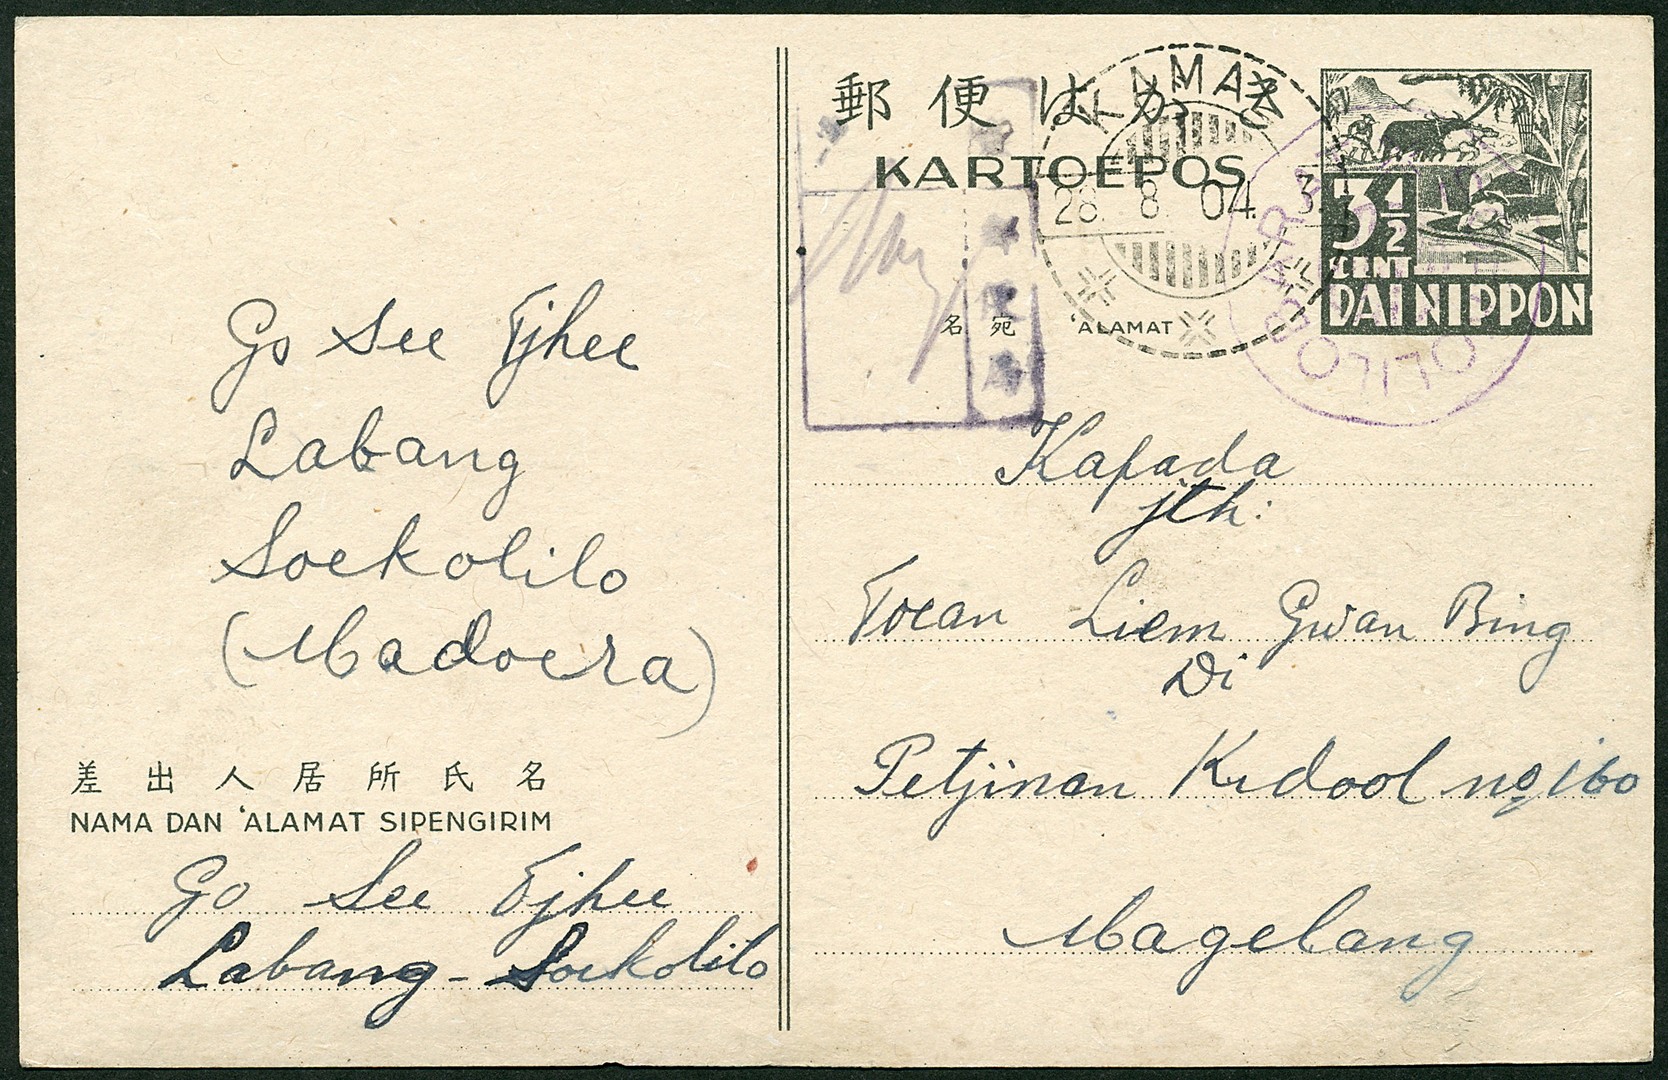 郵便はがき
KARTOEPOS
KAMAL
28. 8. 04.
3½
CENT
DAI NIPPON
SOEKOLILO BARAT
名宛
'ALAMAT
Go See Tjhee
Labang
Soekolilo
(Madoera)
差出人居所氏名
NAMA DAN 'ALAMAT SIPENGIRIM
Go See Tjhee
Labang - Soekolilo
Kapada
jth:
Toean Liem Gwan Bing
Di
Petjinan Kidool no 160
Magelang